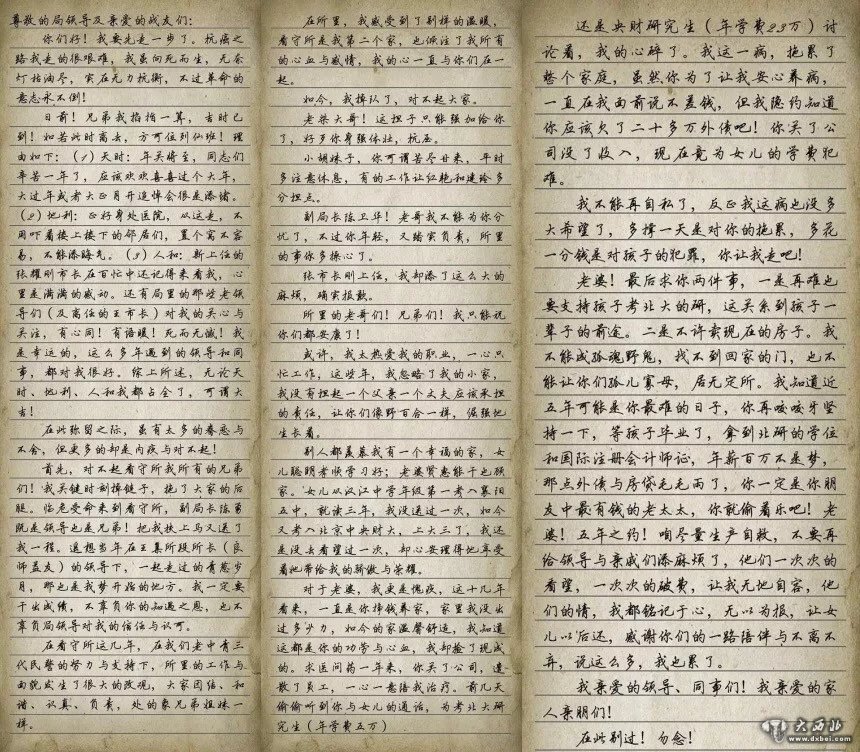 尊敬的局领导及亲爱的战友们:
你们好!我要先走一步了。抗癌之
路我走的很艰难,我虽向死而生,无奈
灯枯油尽,实在无力抗衡,不过革命的
意志永不倒!
日前!兄弟我掐指一算,去时已
到!如若此时离去,方可位列仙班!理
由如下:(1)天时:年关将至,同志们
辛苦一年了,应该欢欢喜喜过个大年,
大过年或者大正月开追悼会很是添堵。
(2)地利:正好身处医院,从这走,不
用吓着楼上楼下的邻居们,置个窝不容
易,不能添晦气。(3)人和:新上任的
张耀明市长在百忙中还记得来看我,心
里是满满的感动。还有局里的那些老领
导们(及离任的王市长)对我的关心与
关注,有心同!有语暖!死而无憾!我
是幸运的,这么多年遇到的领导和同
事,都对我很好。综上所述,无论天
时、地利、人和我都占全了,可谓大
吉!
在此弥留之际,虽有太多的眷恋与
不舍,但更多的却是内疚与对不起!
首先,对不起看守所我所有的兄弟
们!我关键时刻掉链子,拖了大家的后
腿。临危受命来到看守所,副局长陈勇
既是领导也是兄弟!把我扶上马又送了
我一程。遥想当年在王集所段所长(良
师益友)的领导下,一起走过的青葱岁
月,那也是我梦开始的地方。我一定要
干出成绩,不辜负你的知遇之恩,也不
辜负局领导对我的信任与认可。
在看守所这几年,在我们老中青三
代民警的努力与支持下,所里的工作与
面貌发生了很大的改观,大家团结、和
谐、认真、负责,处的象兄弟姐妹一
样。
在所里,我感受到了别样的温暖,
看守所是我第二个家,也倾注了我所有
的心血与感情,我的心一直与你们在一
起。
如今,我掉队了,对不起大家。
老柴大哥!这担子只能强加给你
了,好歹你身强体壮,抗压。
小胡妹子,你可谓苦尽甘来,平时
多注意休息,有的工作让红艳和建玲多
分担点。
副局长陈卫华!老哥我不能为你分
忧了,不过你年轻,又踏实负责,所里
的事你多操心了。
张市长刚上任,我却添了这么大的
麻烦,确实抱歉。
所里的老哥们!兄弟们!我只能祝
你们都安康了!
或许,我太热爱我的职业,一心只
忙工作,这些年,我忽略了我的小家,
我没有担起一个父亲一个丈夫应该承担
的责任,让你们像野百合一样,倔强地
生长着。
别人都羡慕我有一个幸福的家,女
儿聪明孝顺学习好;老婆贤惠能干也顾
家。女儿以汉江中学年级第一考入襄阳
五中,就读三年,我没送过一次,如今
又考入北京中央财大,上大三了,我还
是没去看望过一次,却心安理得地享受
着她带给我的骄傲与荣耀。
对于老婆,我更是愧疚,这十几年
看来,一直是你挣钱养家,家里我没出
过多少力,如今的家温馨舒适,我知道
这都是你的功劳与心血,我却捡了现成
的。求医问药一年来,你关了公司,遣
散了员工,一心一意陪我治疗。前几天
偷偷听到你与女儿的通话,为考北大研
究生(年学费五万)
还是央财研究生(年学费23万)讨
论着,我的心碎了。我这一病,拖累了
整个家庭,虽然你为了让我安心养病,
一直在我面前说不差钱,但我隐约知道
你应该欠了二十多万外债吧!你关了公
司没了收入,现在竟为女儿的学费犯
难。
我不能再自私了,反正我这病也没多
大希望了,多撑一天是对你的拖累,多花
一分钱是对孩子的犯罪,你让我走吧!
老婆!最后求你两件事,一是再难也
要支持孩子考北大的研,这关系到孩子一
辈子的前途。二是不许卖现在的房子。我
不能成孤魂野鬼,找不到回家的门,也不
能让你们孤儿寡母,居无定所。我知道近
五年可能是你最难的日子,你再咬咬牙坚
持一下,等孩子毕业了,拿到北研的学位
和国际注册会计师证,年薪百万不是梦,
那点外债与房贷毛毛雨了,你一定是你朋
友中最有钱的老太太,你就偷着乐吧!老
婆!五年之约!咱尽量生产自救,不要再
给领导与亲戚们添麻烦了,他们一次次的
看望,一次次的破费,让我无地自容,他
们的情,我都铭记于心,无以为报,让女
儿以后还,感谢你们的一路陪伴与不离不
弃,说这么多,我也累了。
我亲爱的领导、同事们!我亲爱的家
人亲朋们!
在此别过!勿念!
大西北
www.dxbei.com